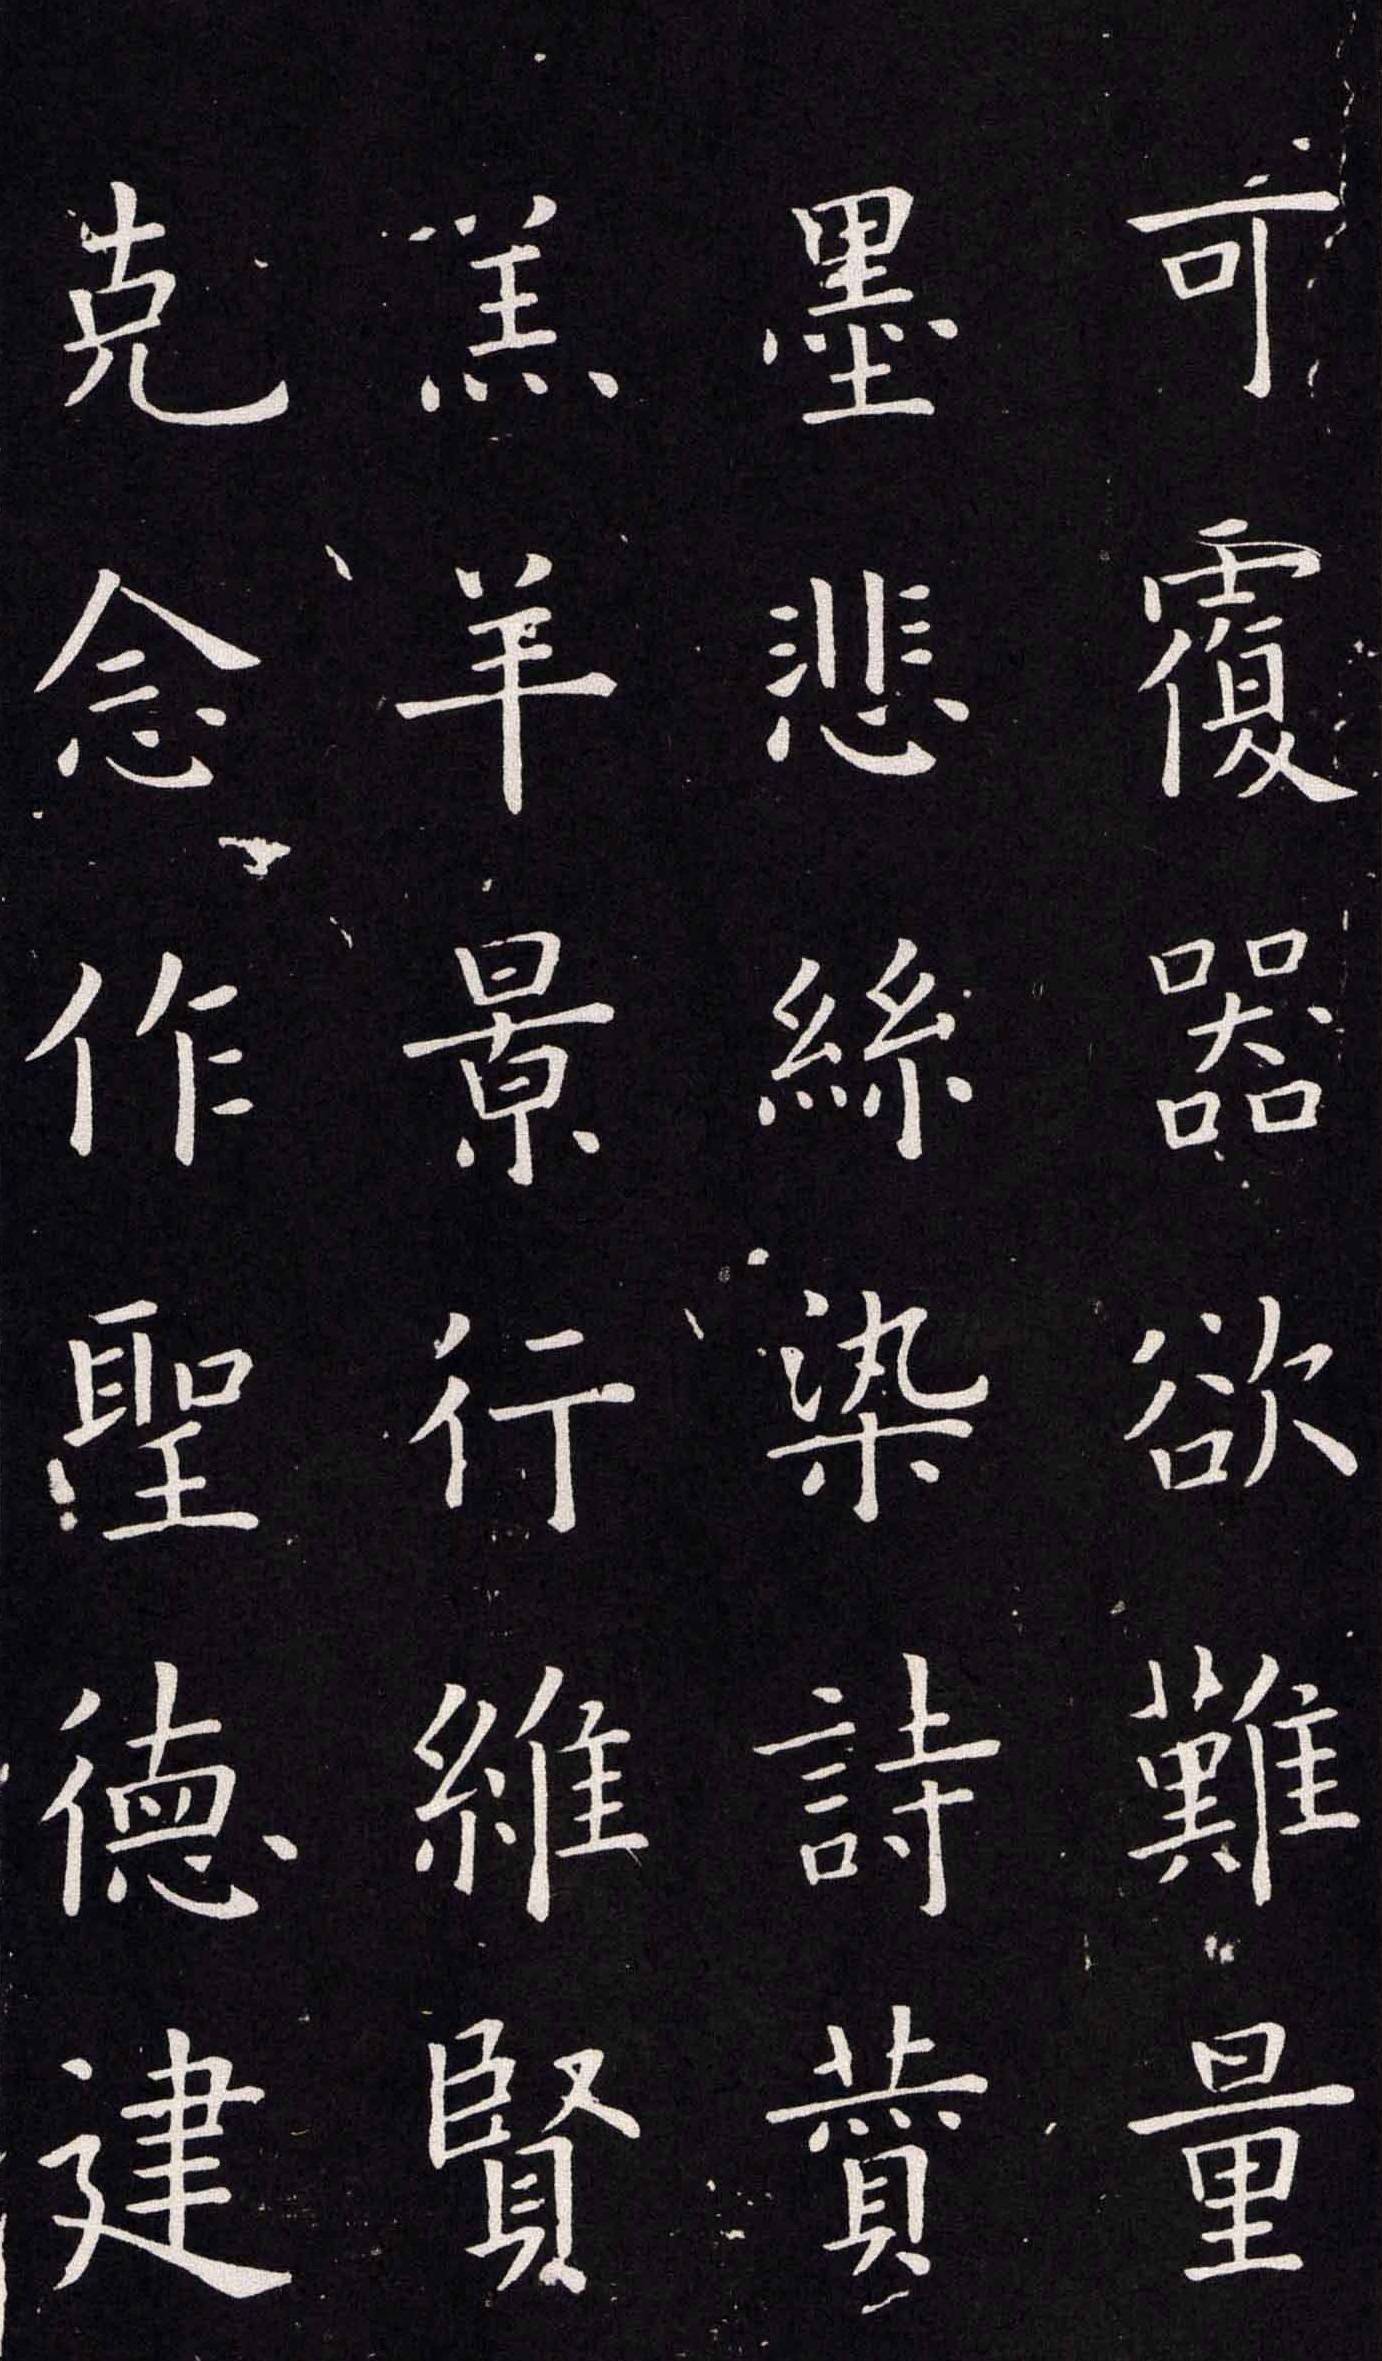 可覆器欲難量
墨悲絲染詩讚
羔羊景行維賢
克念作聖德建